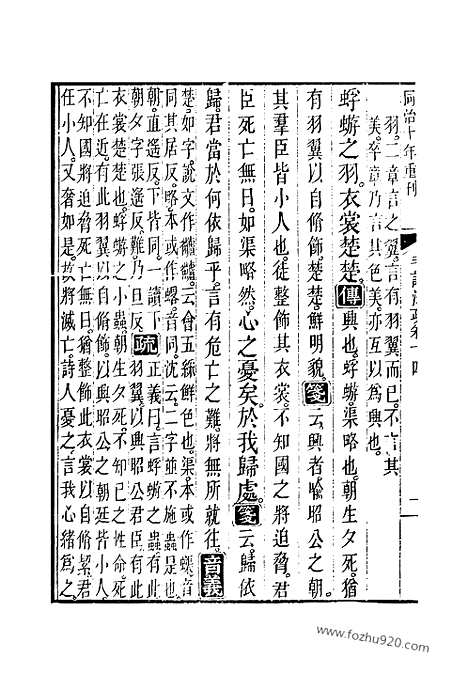 同治十年重刊
毛詩注疏卷十四
二
羽二章言之翼言有羽翼而已不言其
美卒章乃言其色美亦互以為興也
蜉蝣之羽衣裳楚楚傳興也蜉蝣渠略也朝生夕死猶
有羽翼以自脩飾楚楚鮮明貌箋云興者喻昭公之朝
其羣臣皆小人也徒整飾其衣裳不知國之將迫脅君
臣死亡無日如渠略然心之憂矣於我歸處箋云歸依
歸君當於何依歸乎言有危亡之難將無所就往音義
楚如字說文作𪓐𪓐云會五綵鮮色也渠本或作蟝音
同其居反略本或作䗉音同沈云二字並不施蟲是也
朝直遙反下皆同一讀下
朝夕字張遙反難乃旦反疏正義曰言蜉蝣之蟲有此
羽翼以興昭公君臣有此
衣裳楚楚也蜉蝣之小蟲朝生夕死不知已之性命死
亡在近有此羽翼以自脩飾以興昭公之朝廷皆小人
不知國將迫脅死亡無日猶整飾此衣裳以自脩絜君
任小人又奢如是故將滅亡詩人憂之言我心緒為之
www.fozhu920.com